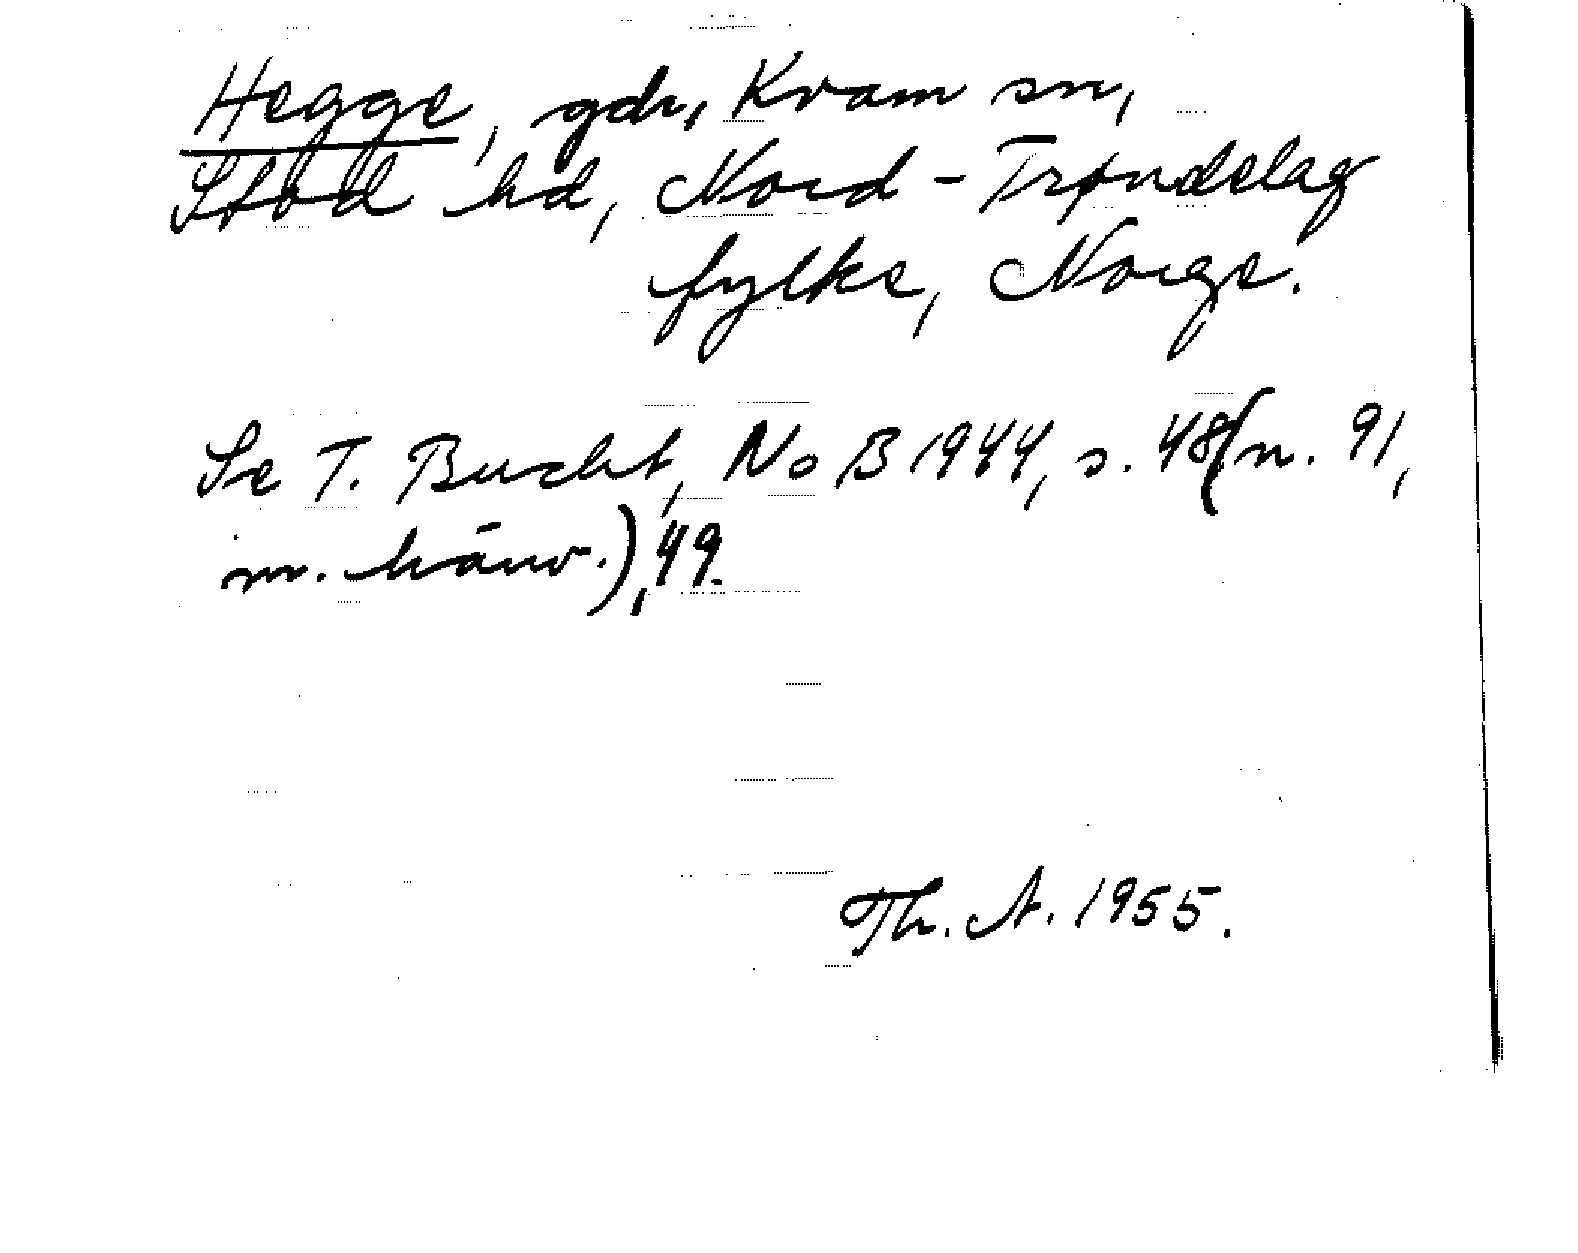 Hegge, gdr, Kvam sn,
Stod hd, Nord-Trøndelag
fylke, Norge.
Se T. Bucht, NoB 1944, s. 48 (n. 91,
m. hänv.), 49.
Th. A. 1955.